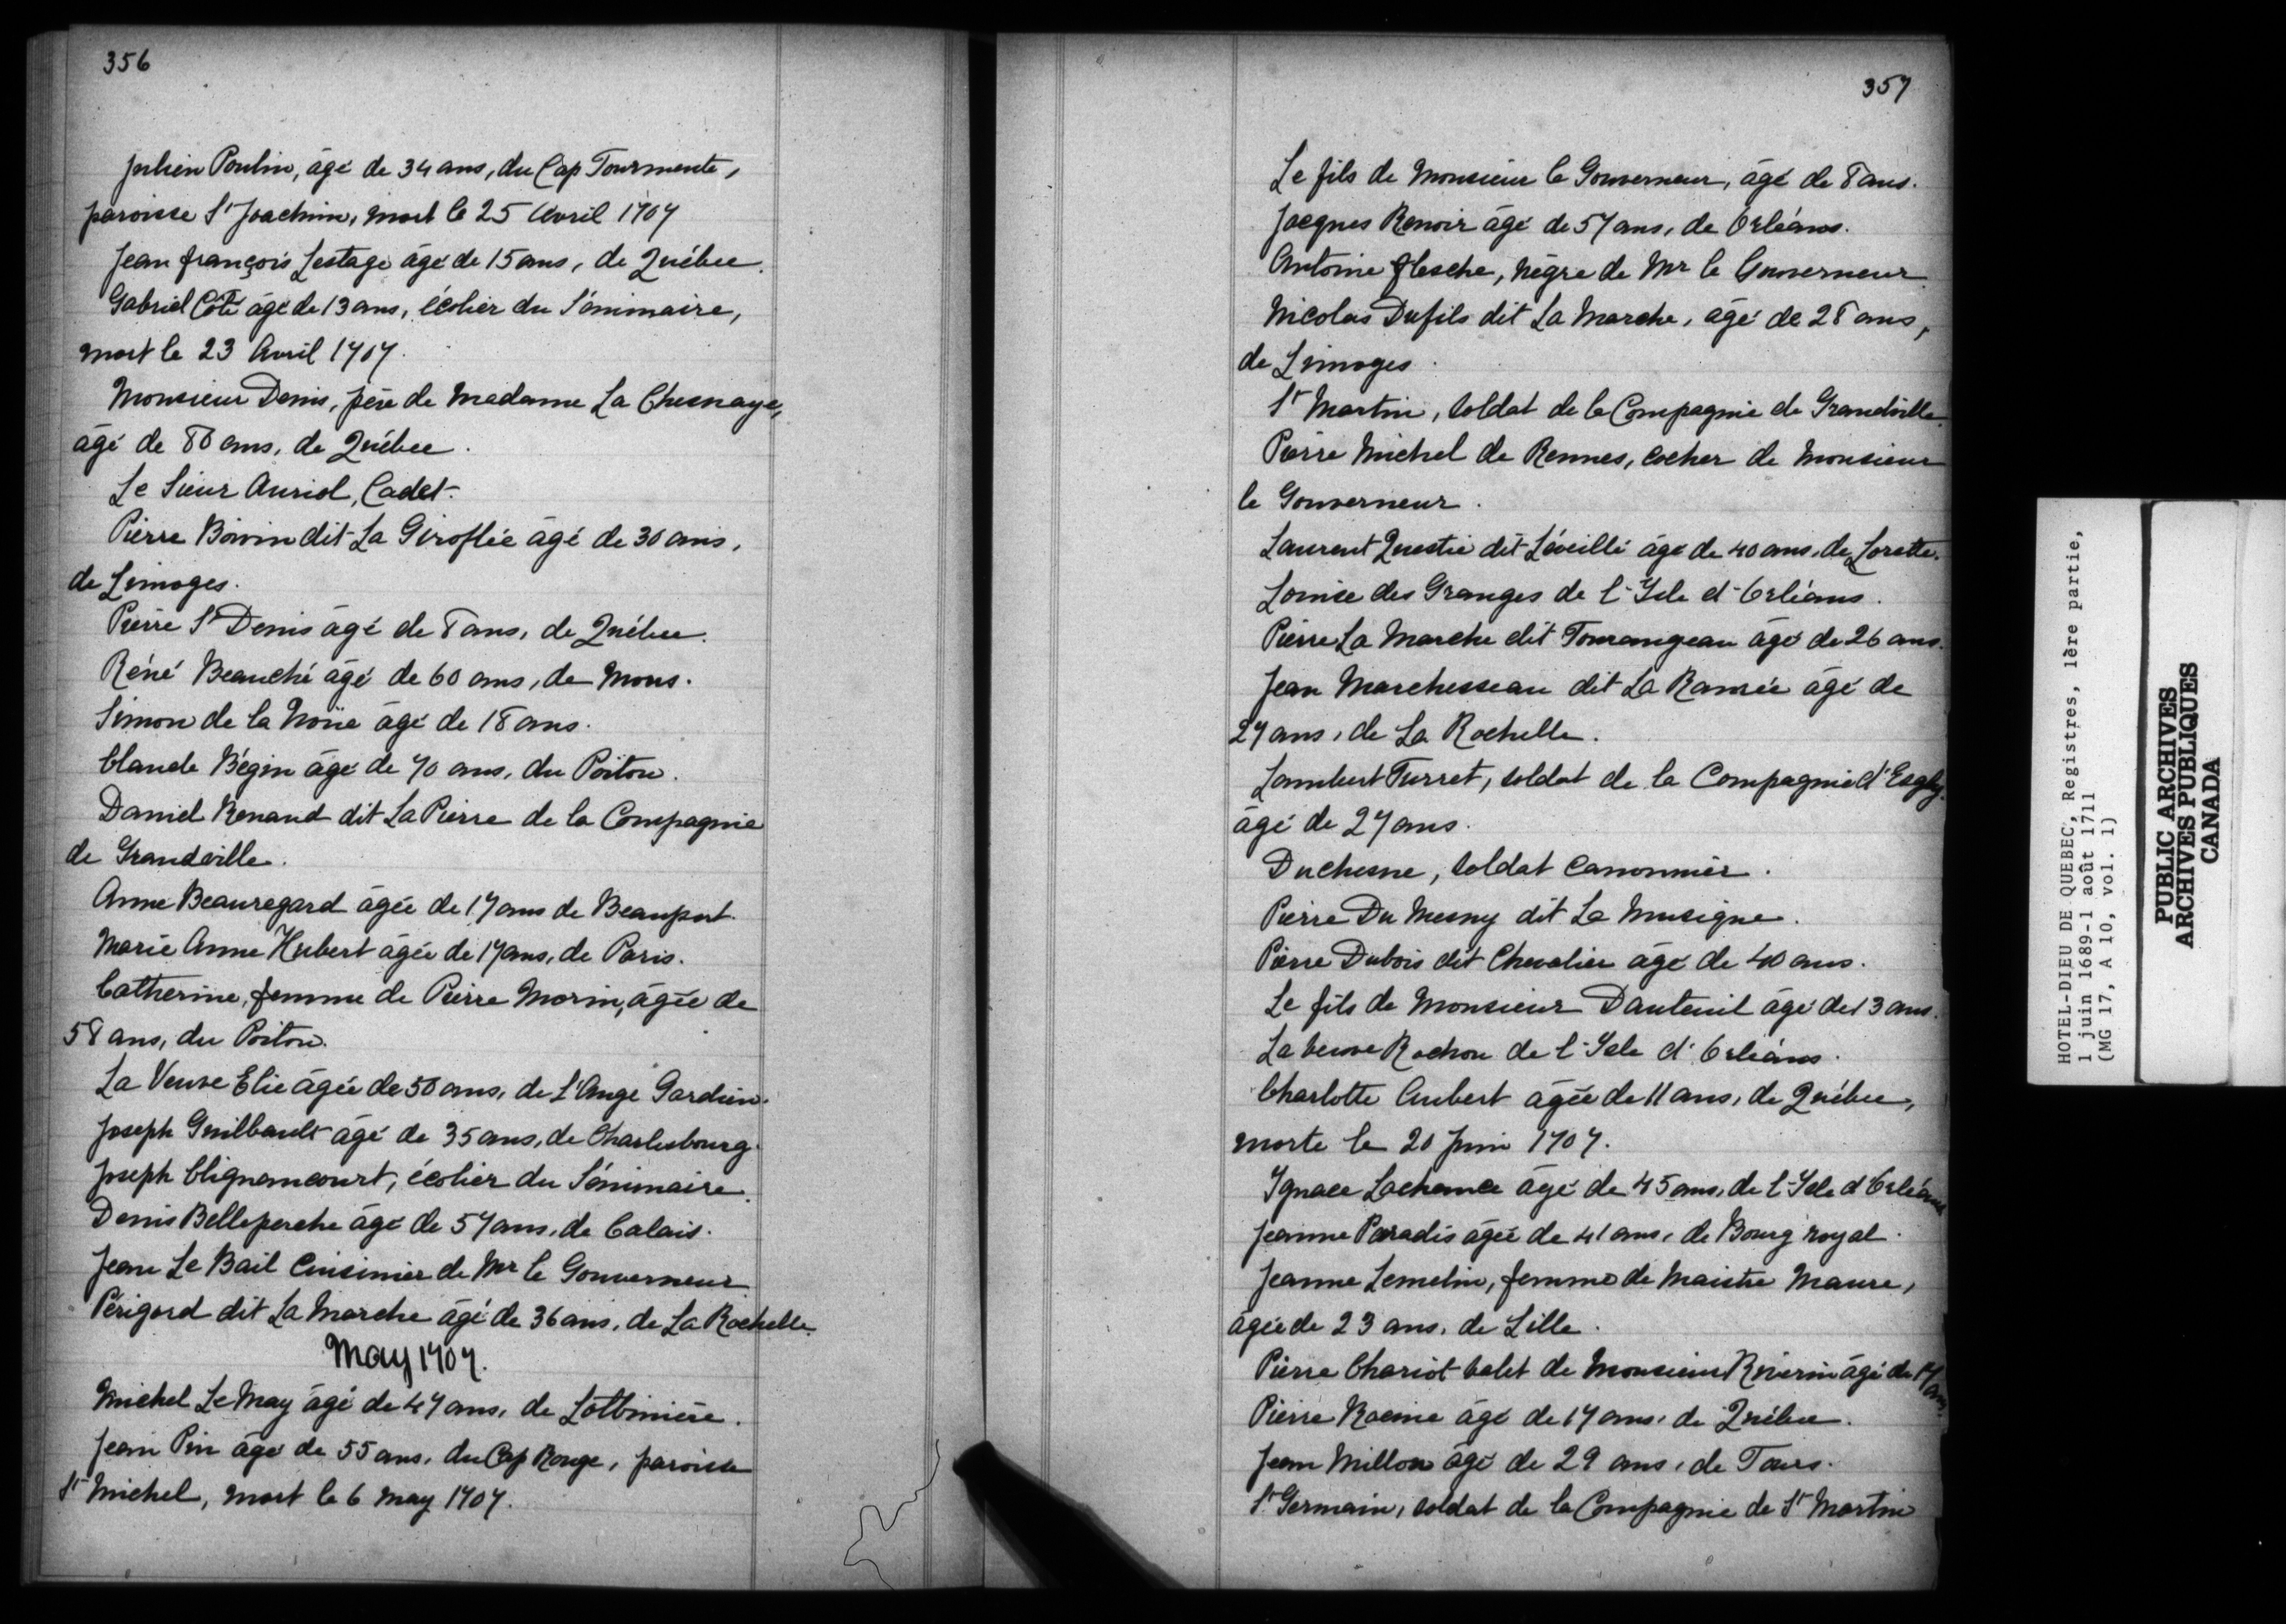 356
Julien Poulin, âgé de 34 ans, du Cap Tourmente,
paroisse St Joachim, mort le 25 Avril 1707
Jean françois Lestage âgé de 15 ans, de Québec.
Gabriel Côté âgé de 13 ans, écolier du Séminaire,
mort le 23 Avril 1707.
Monsieur Denis, père de Madame La Chesnaye,
âgé de 80 ans, de Québec.
Le Sieur Auriol, Cadet.
Pierre Boivin dit La Giroflée âgé de 30 ans,
de Limoges.
Pierre St Denis âgé de 8 ans, de Québec.
Réné Beauché âgé de 60 ans, de Mons.
Simon de la Noüe âgé de 18 ans.
Claude Bégin âgé de 70 ans, du Poitou.
Daniel Renaud dit La Pierre de la Compagnie
de Grandville.
Anne Beauregard âgée de 17 ans de Beauport.
Marie Anne Hubert âgée de 17 ans, de Paris.
Catherine, femme de Pierre Morin, âgée de
58 ans, du Poitou.
La Veuve Elie âgée de 50 ans, de L'Ange Gardien.
Joseph Guilbault âgé de 35 ans, de Charlesbourg.
Joseph Clignancourt, écolier du Séminaire.
Denis Belleperche âgé de 57 ans, de Calais.
Jean Le Bail Cuisinier de Mr le Gouverneur
Périgord dit La Marche âgé de 36 ans, de La Rochelle.
May 1707.
Michel Le May âgé de 47 ans, de Lotbinière.
Jean Pin âgé de 55 ans, du Cap Rouge, paroisse
St Michel, mort le 6 May 1707.
357
Le fils de Monsieur le Gouverneur, âgé de 8 ans.
Jacques Renoir âgé de 57 ans, de Orléans.
Antoine flesche, nègre de Mr le Gouverneur.
Nicolas Dufils dit La Marche, âgé de 28 ans,
de Limoges.
St Martin, soldat de la Compagnie de Grandville.
Pierre Michel de Rennes, cocher de Monsieur
le Gouverneur.
Laurent Questié dit Léveillé âgé de 40 ans, de Lorette.
Louise des Granges de l'Isle d'Orléans.
Pierre La Marche dit Tourangeau âgé de 26 ans.
Jean Marchesseau dit La Ramée âgé de
27 ans, de La Rochelle.
Lambert Turret, soldat de la Compagnie d'Esgly.
âgé de 27 ans.
Duchesne, soldat canonnier.
Pierre Du Mesny dit La Musique.
Pierre Dubois dit Chevalier âgé de 40 ans.
Le fils de Monsieur Dauteuil âgé de 13 ans.
La veuve Rochon de l'Isle d'Orléans.
Charlotte Aubert âgée de 11 ans, de Québec,
morte le 20 Juin 1707.
Ignace Lachance âgé de 45 ans, de l'Isle d'Orléans
Jeanne Paradis âgée de 41 ans, de Bourg royal.
Jeanne Lemelin, femme de Maistre Maure,
âgée de 23 ans, de Lille.
Pierre Chariot valet de Monsieur Riverin âgé de 17 ans.
Pierre Racine âgé de 17 ans, de Québec.
Jean Millon âgé de 29 ans, de Tours.
St Germain, soldat de la Compagnie de St Martin
HOTEL-DIEU DE QUEBEC, Registres, 1ère partie,
1 juin 1689-1 août 1711
(MG 17, A 10, vol. 1)
PUBLIC ARCHIVES
ARCHIVES PUBLIQUES
CANADA